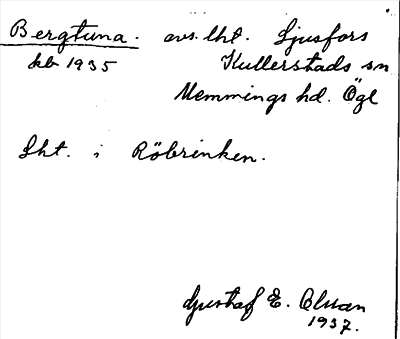 Bergtuna. avs. lht. Ljusfors
kb 1935 Kullerstads sn
Memmings hd. Ögl
Lht. i Röbrinken.
Gustaf E. Olsson
1937.